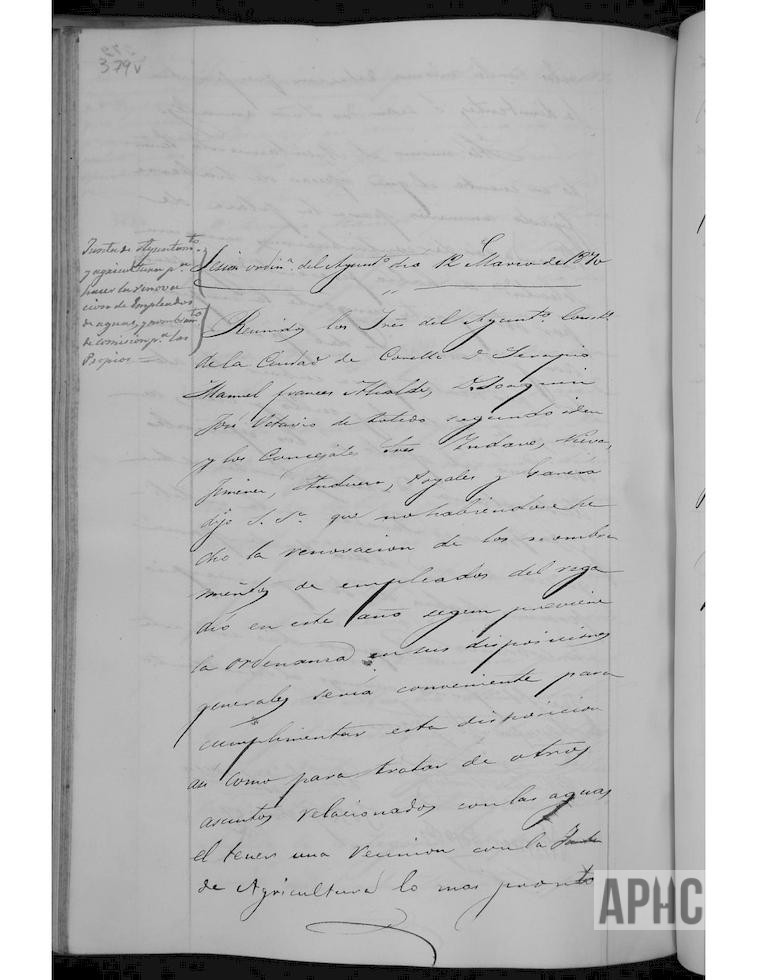 379v
Junta de Ayuntamto
y agricultura pa
hacer la renova
cion de Empleados
de aguas, y nombramto
de comision pa los
Propios
Sesion ordina. del Ayunto. dia 12 Marzo de 1870
Reunidos los Sres del Ayunto. Constl.
de la Ciudad de Corella D. Serapio
Manuel frances Alcalde, D. Joaquin
José Octavio de toledo segundo idem
y los Concejales Sres Yndave, Nieva,
Jimenez, Arduero, Argales y Garcia
dijo S. Sa. que no habiendose he
cho la renovacion de los nombra
mientos de empleados del rega
dio en este año segun previene
la ordenanza en sus disposiciones
generales seria conveniente para
cumplimentar esta disposicion
asi como para tratar de otros
asuntos relacionados con las aguas
el tener una reunion con la Junta
de Agricultura lo mas pronto
APHC